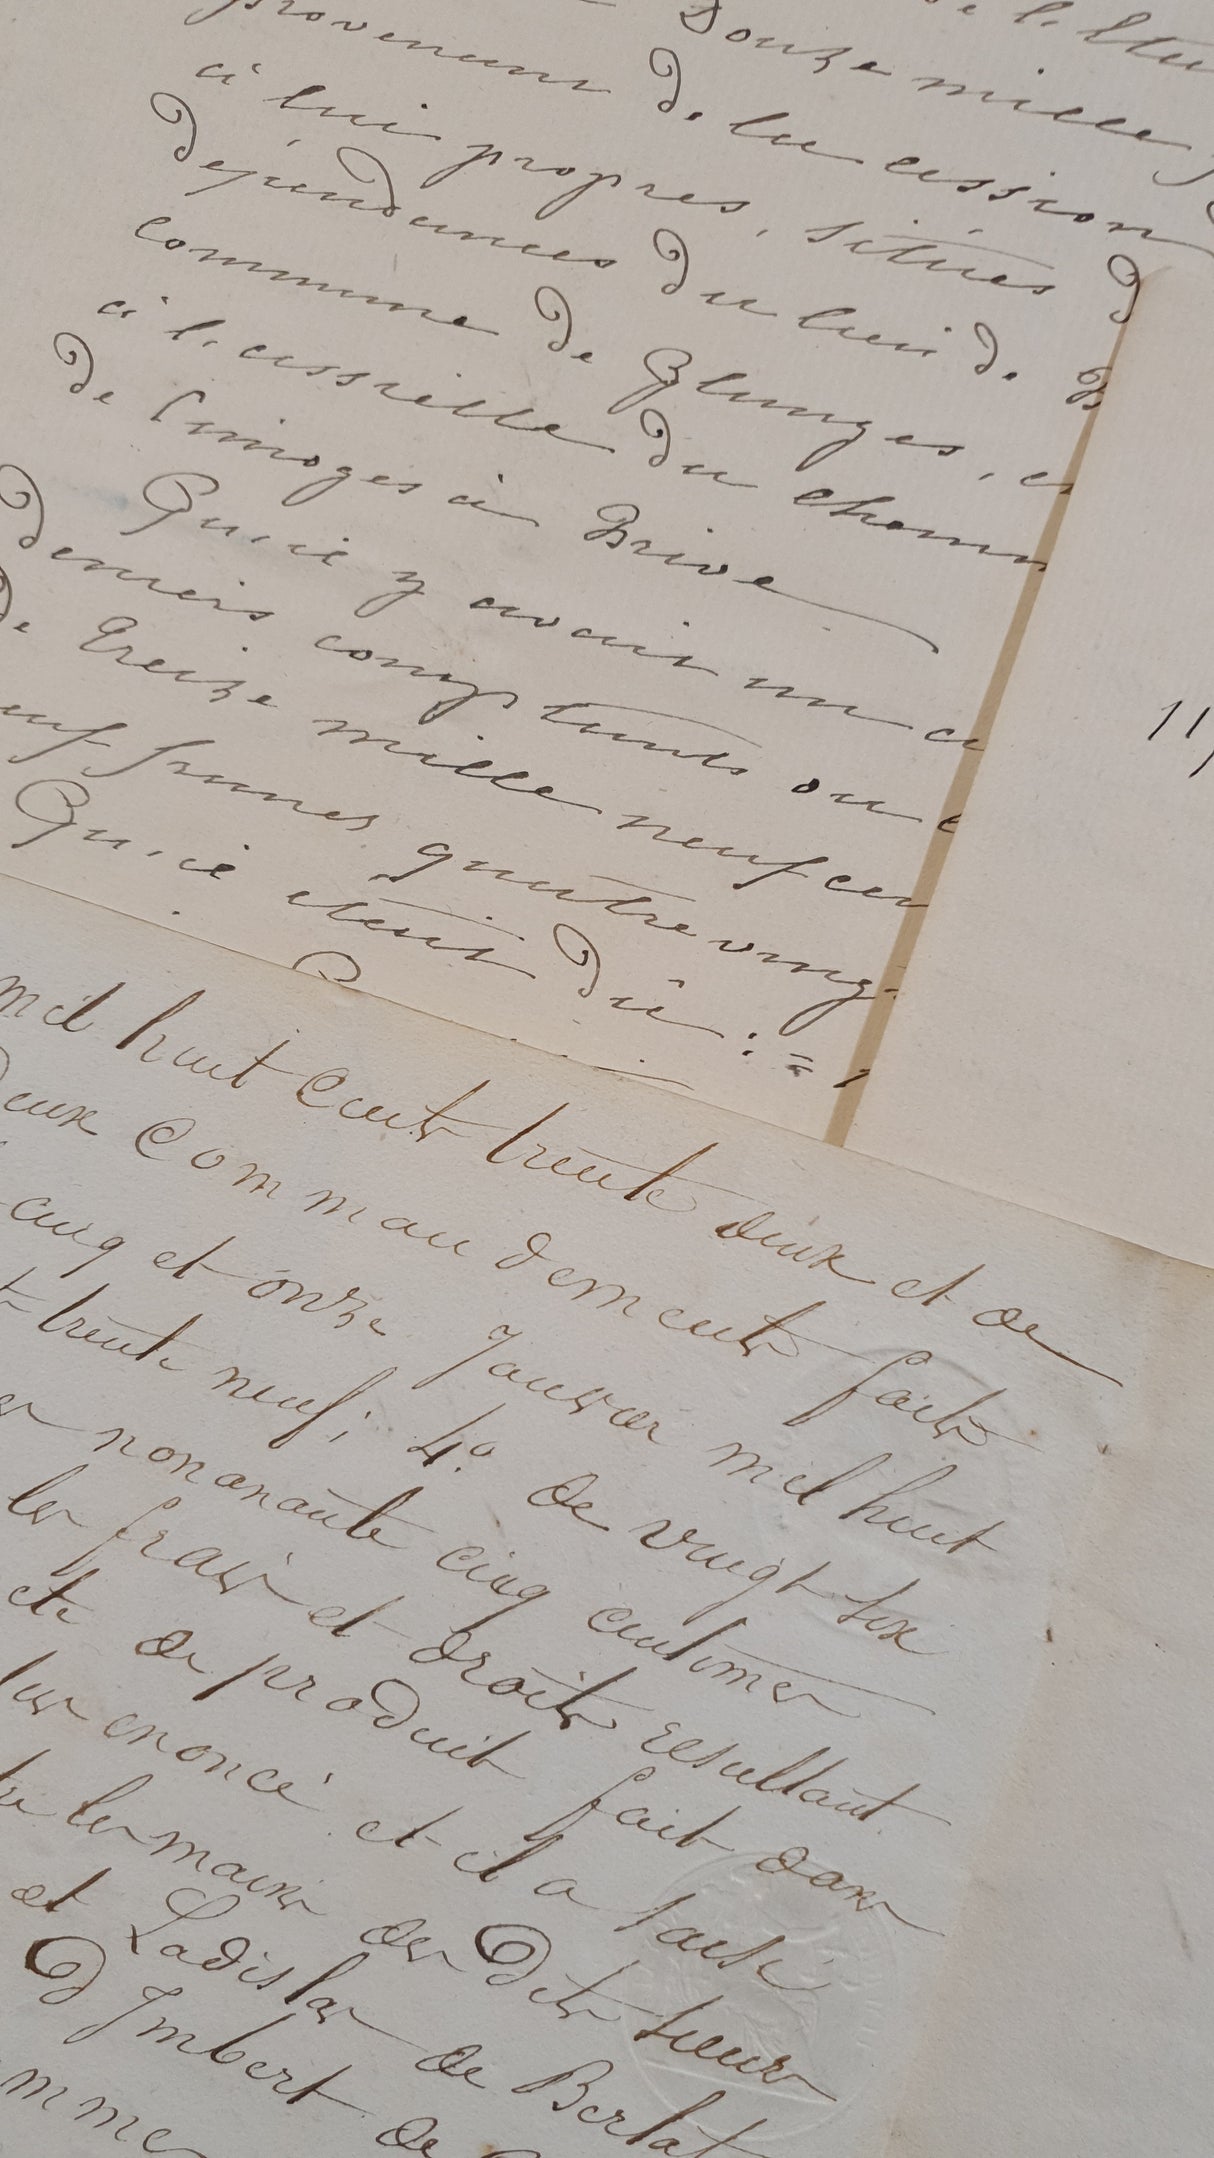 de l'Etu
Douze mille f
provenant de la cession
à lui propres, situés d
dépendances du lieu de B
commune de Glanges, et
à l'assiette du chemin
de Limoges à Brive
Qu'il y avait un a
deniers comptants ou e
de treize mille neuf cen
neuf francs quatre vingt
Qu'il était dû :
11
mil huit cents trente deux et de
deux commandements faits
cinq et onze Janvier mil huit
trente neuf; 4° de vingt six
nonanante cinq centimes
les frais et droits resultant
de produit fait dans
enoncé et il a saisi
les mains des Dits sieurs
et Ladislas de Berlat
D'Imbert de
mme